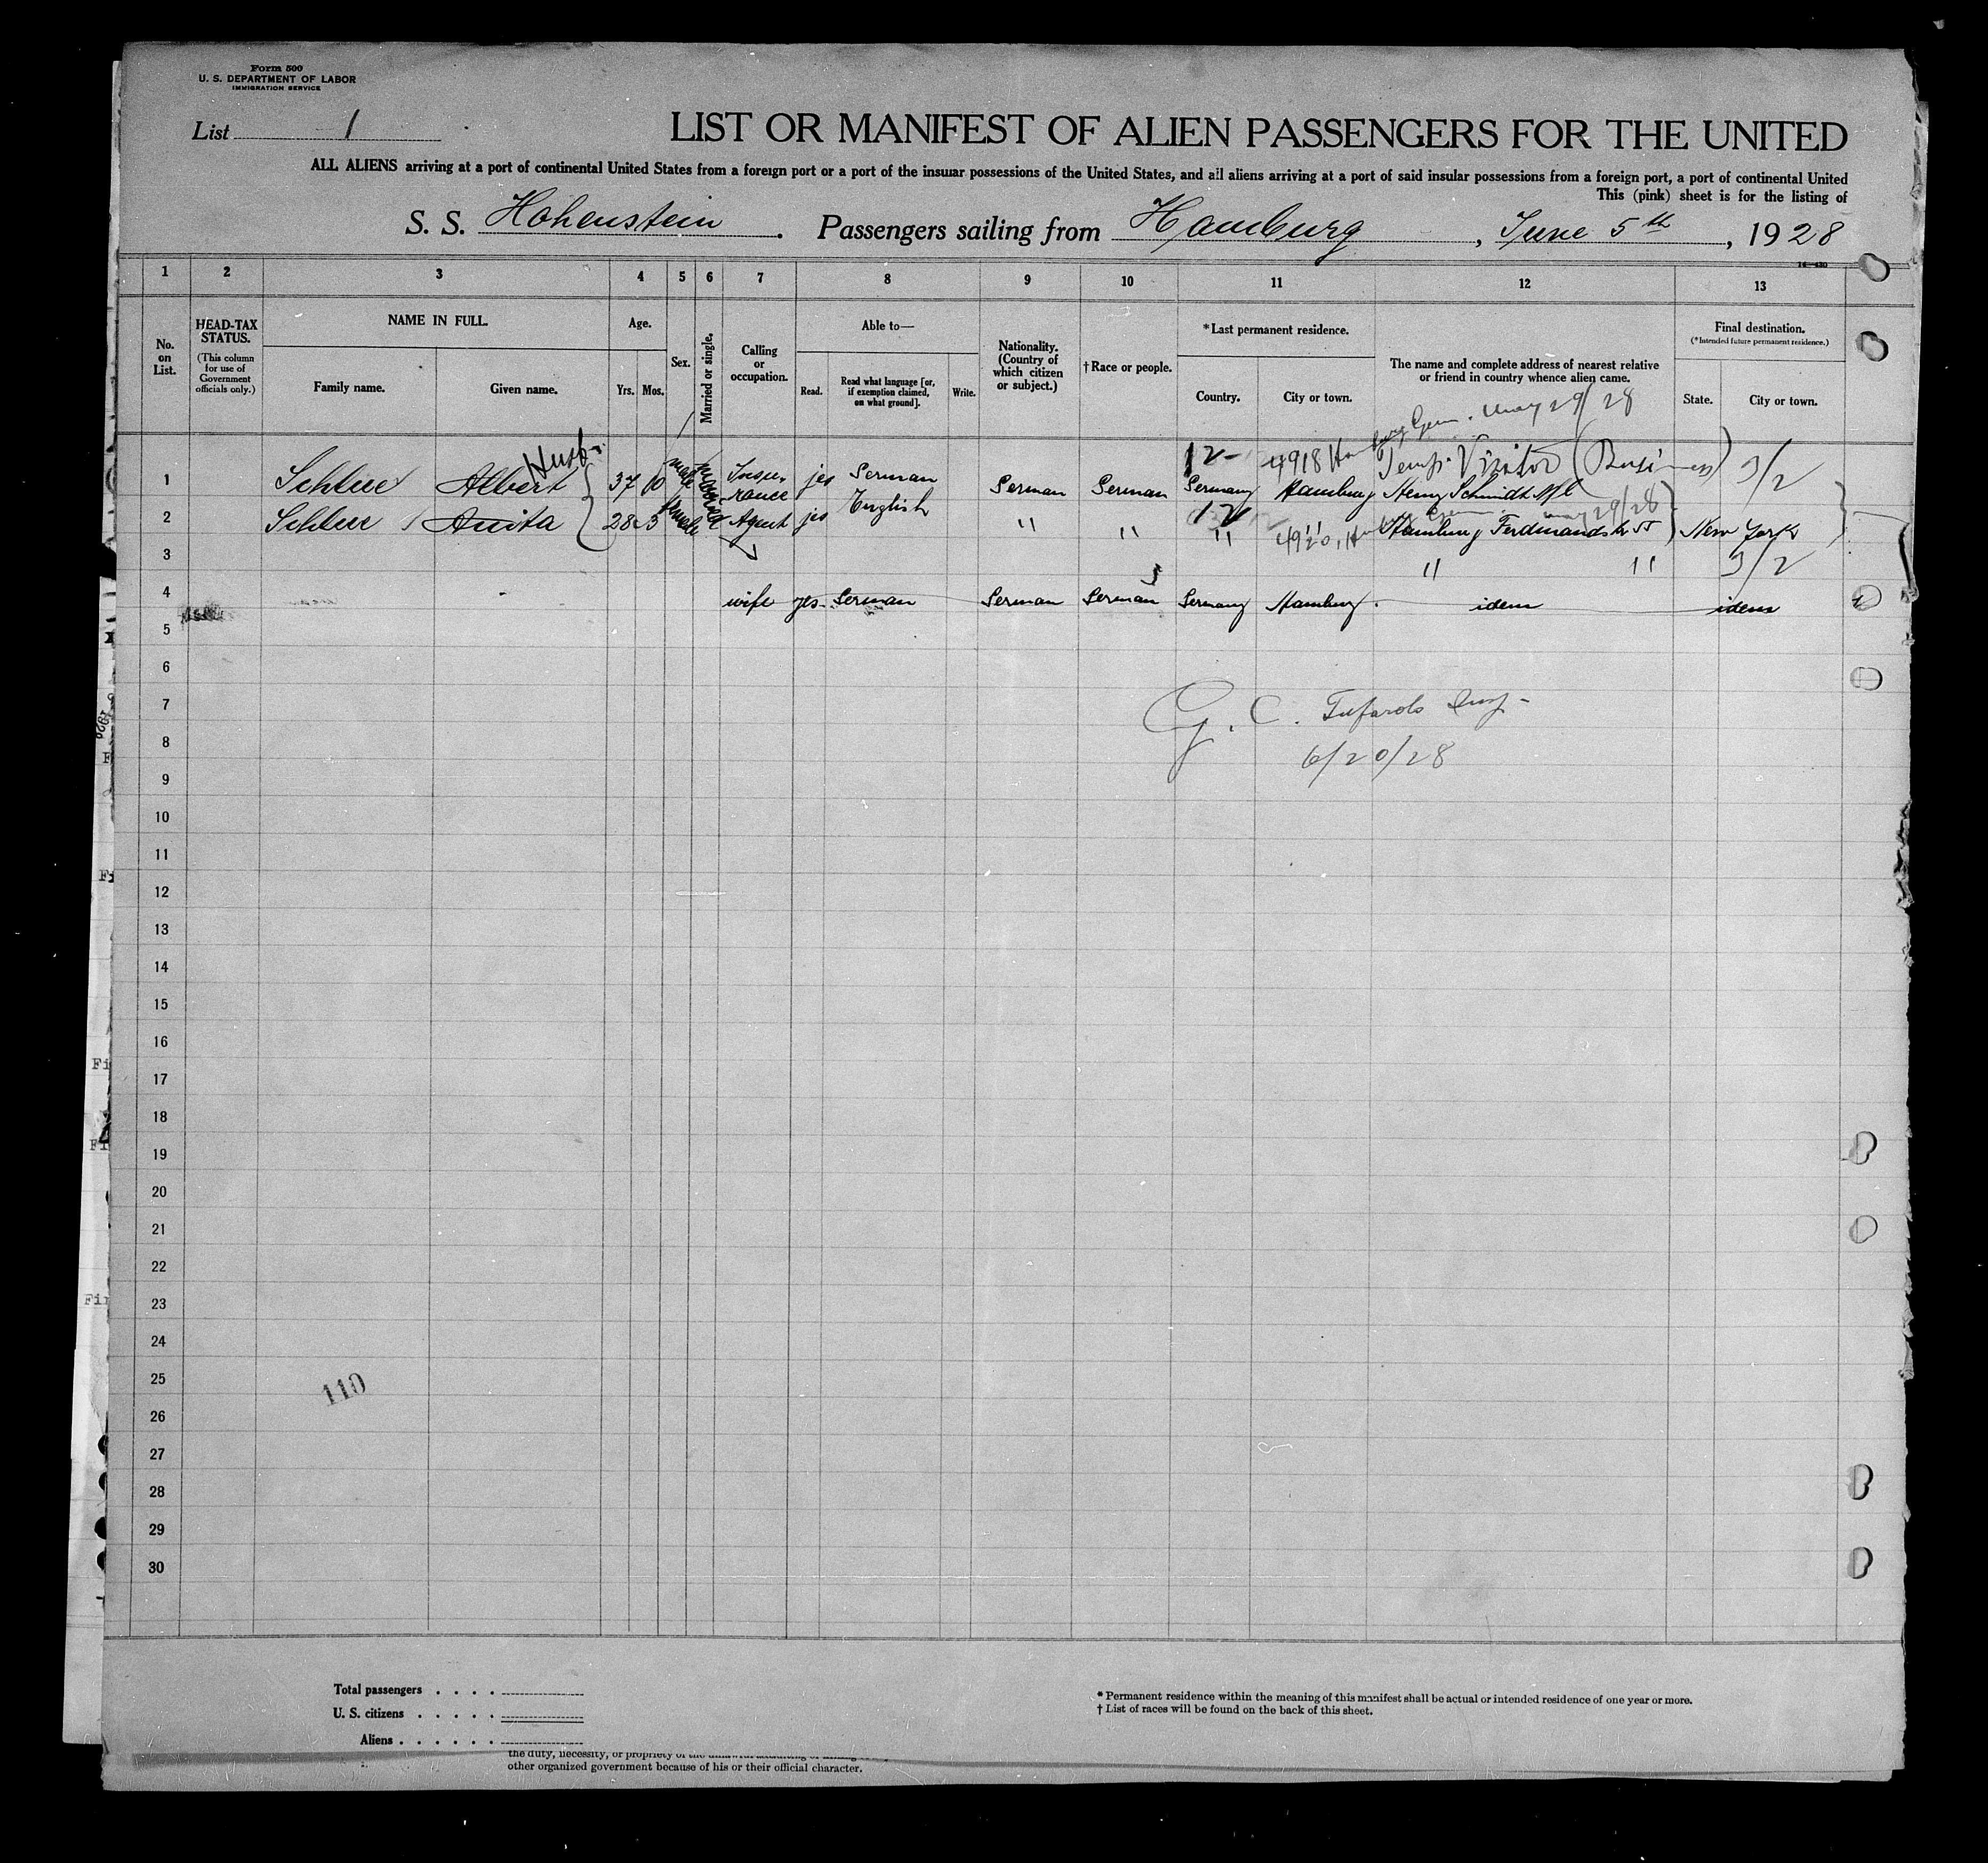 Form 500
U. S. DEPARTMENT OF LABOR
IMMIGRATION SERVICE
List 1
LIST OR MANIFEST OF ALIEN PASSENGERS FOR THE UNITED
ALL ALIENS arriving at a port of continental United States from a foreign port or a port of the insular possessions of the United States, and all aliens arriving at a port of said insular possessions from a foreign port, a port of continental United
This (pink) sheet is for the listing of
S. S. Hohenstein. Passengers sailing from Hamburg, June 5th, 1928
1 2 3 4 5 6 7 8 9 10 11 12 13
No. on List.
HEAD-TAX STATUS.
(This column for use of Government officials only.)
NAME IN FULL.
Family name. Given name.
Age.
Yrs. Mos.
Sex.
Married or single.
Calling or occupation.
Able to—
Read. Read what language [or, if exemption claimed, on what ground]. Write.
Nationality. (Country of which citizen or subject.)
†Race or people.
*Last permanent residence.
Country. City or town.
The name and complete address of nearest relative or friend in country whence alien came.
Final destination.
(*Intended future permanent residence.)
State. City or town.
May 29/28
Husb.
12- 4918 Temp. Visitor (Business) 3/2
1 Albert 37 10 male married Insurance jes German German German Germany Hamburg Henry Schmidt
English
12 4920, May 29/28
2 Anita 28 5 female Agent jes " " " " Hamburg Ferdinandstr 55 New York
3 " " 3/2
4 wife yes German German German Germany Hamburg. idem idem
5
6
7
G. C. Insp-
8
6/20/28
9
10
11
12
13
14
15
16
17
18
19
20
21
22
23
24
25
110
26
27
28
29
30
Total passengers . . . .
U. S. citizens . . . . .
Aliens . . . . . .
* Permanent residence within the meaning of this manifest shall be actual or intended residence of one year or more.
† List of races will be found on the back of this sheet.
the duty, necessity, or propriety of the
other organized government because of his or their official character.